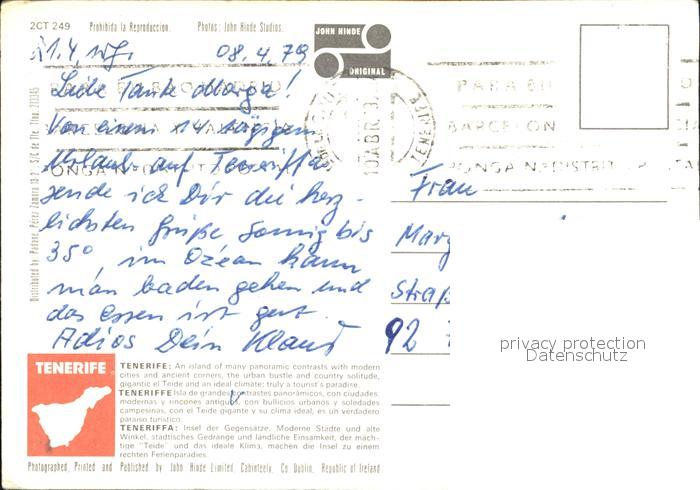 2CT 249 Prohibida la Reproduccion. Photos: John Hinde Studios.
JOHN HINDE
ORIGINAL
08.4.79
Liebe Tante Marga!
Von einem 14 tägigem
Urlaub auf Teneriffa
sende ich Dir die herz-
lichsten Grüße. Sonnig bis
35°, im Ozean kann
man baden gehen und
das Essen ist gut.
Adios Dein Klaus
PARA EN
BARCELON
PONGA N.º DISTRIT
10 ABR.
Frau
Marg
Straß
92
privacy protection
Datenschutz
TENERIFE
TENERIFE: An island of many panoramic contrasts with modern
cities and ancient corners, the urban bustle and country solitude,
gigantic el Teide and an ideal climate; truly a tourist's paradise.
TENERIFFE Isla de grandes contrastes panorámicos, con ciudades
modernas y rincones antiguos, con bullicios urbanos y soledades
campesinas, con el Teide gigante y su clima ideal, es un verdadero
paraiso turistico.
TENERIFFA: Insel der Gegensätze. Moderne Städte und alte
Winkel, städtisches Gedränge und ländliche Einsamkeit, der mäch-
tige "Teide" und das ideale Klima, machen die Insel zu einem
rechten Ferienparadies.
Photographed, Printed and Published by John Hinde Limited, Cabinteely, Co. Dublin, Republic of Ireland